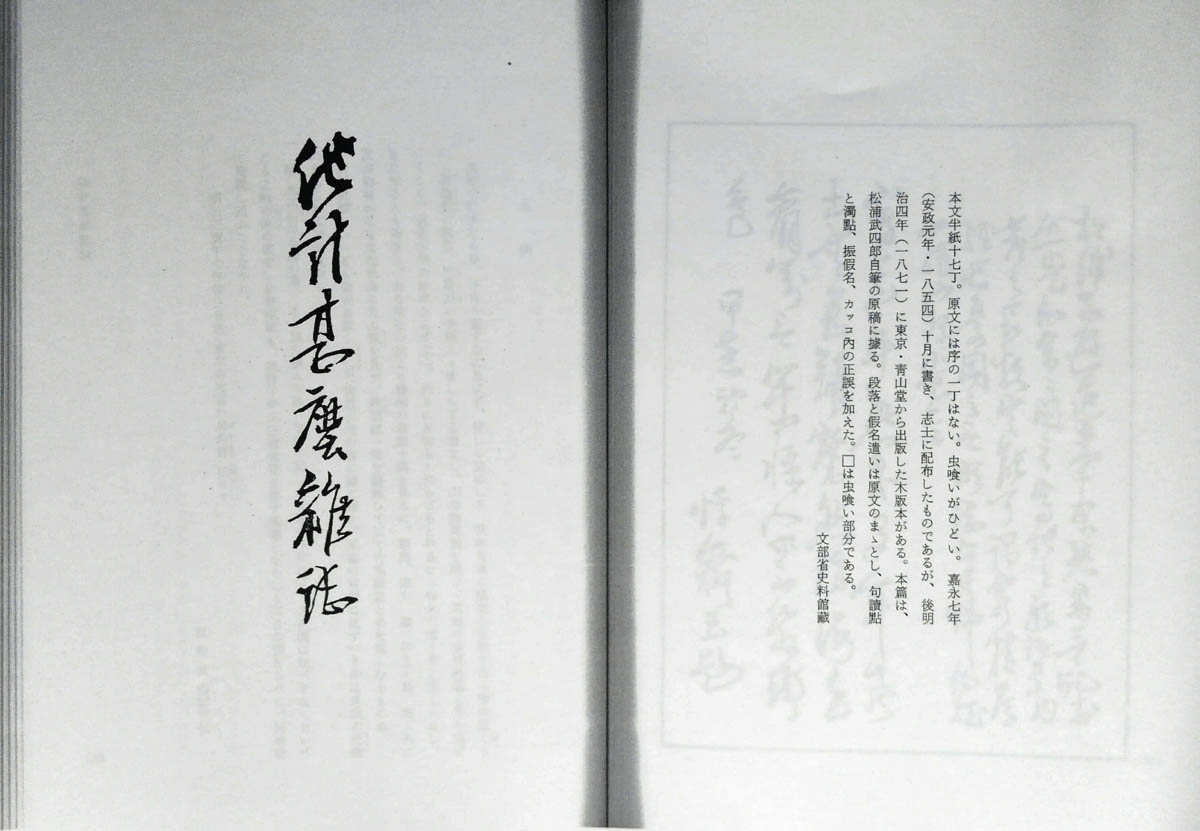 本文半紙十七丁。原文には序の一丁はない。虫喰いがひどい。嘉永七年
（安政元年・一八五四）十月に書き、志士に配布したものであるが、後明
治四年（一八七一）に東京・靑山堂から出版した木版本がある。本篇は、
松浦武四郎自筆の原稿に據る。段落と假名遣いは原文のまゝとし、句讀點
と濁點、振假名、カッコ內の正誤を加えた。□は虫喰い部分である。
文部省史料館藏
他計甚麽雜誌